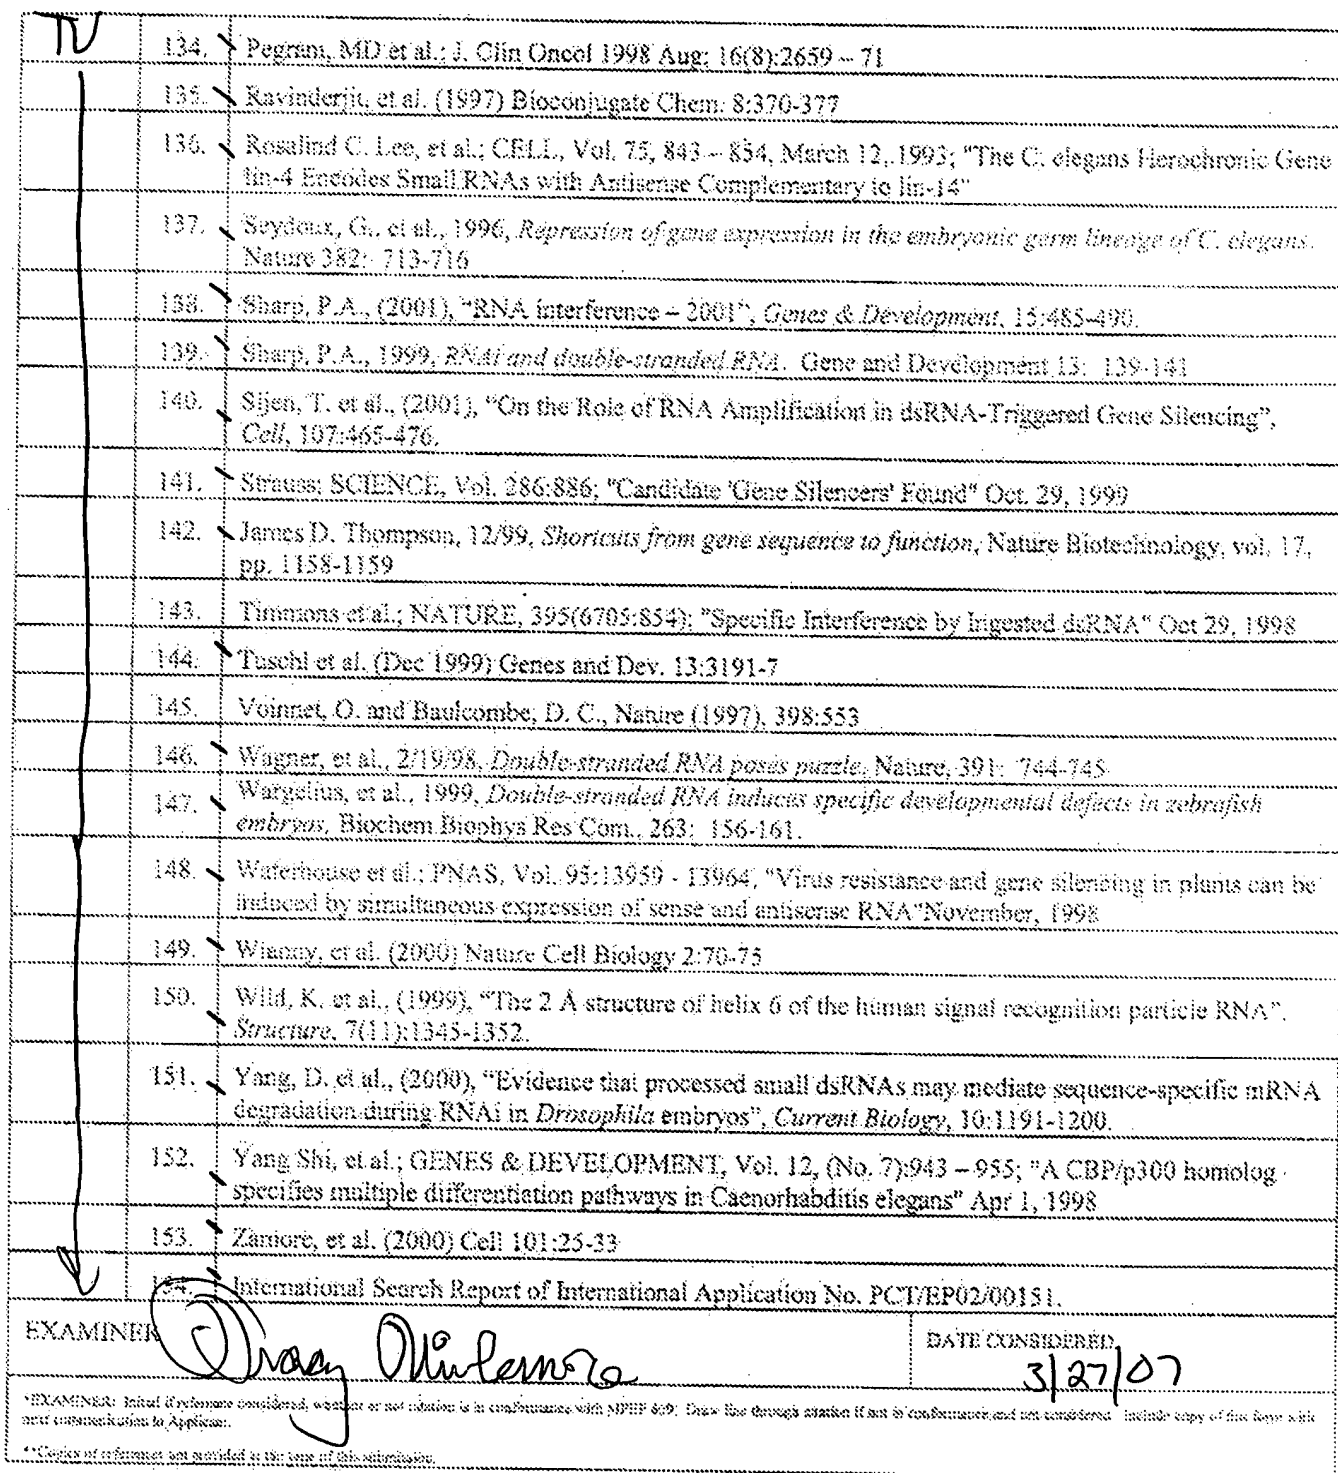 TV
134. Pegram, MD et al.; J. Clin Oncol 1998 Aug; 16(8):2659 – 71
135. Ravinderjit, et al. (1997) Bioconjugate Chem. 8:370-377
136. Rosalind C. Lee, et al.; CELL, Vol. 75, 843 – 854, March 12, 1993; "The C. elegans Herochronic Gene
lin-4 Encodes Small RNAs with Antisense Complementary to lin-14"
137. Seydoux, G., et al., 1996, Repression of gene expression in the embryonic germ lineage of C. elegans.
Nature 382: 713-716
138. Sharp, P.A., (2001), "RNA interference – 2001", Genes & Development, 15:485-490.
139. Sharp, P.A., 1999, RNAi and double-stranded RNA. Gene and Development 13: 139-141
140. Sijen, T. et al., (2001), "On the Role of RNA Amplification in dsRNA-Triggered Gene Silencing",
Cell, 107:465-476.
141. Strauss; SCIENCE, Vol. 286:886; "Candidate 'Gene Silencers' Found" Oct. 29, 1999
142. James D. Thompson, 12/99, Shortcuts from gene sequence to function, Nature Biotechnology, vol. 17,
pp. 1158-1159
143. Timmons et al.; NATURE, 395(6705:854); "Specific Interference by Ingested dsRNA" Oct 29, 1998
144. Tuschl et al. (Dec 1999) Genes and Dev. 13:3191-7
145. Voinnet, O. and Baulcombe, D. C., Nature (1997), 398:553
146. Wagner, et al., 2/19/98, Double-stranded RNA poses puzzle, Nature, 391: 744-745
147. Wargelius, et al., 1999, Double-stranded RNA induces specific developmental defects in zebrafish
embryos, Biochem Biophys Res Com., 263: 156-161.
148. Waterhouse et al.; PNAS, Vol. 95:13959 - 13964, "Virus resistance and gene silencing in plants can be
induced by simultaneous expression of sense and antisense RNA"November, 1998
149. Wianny, et al. (2000) Nature Cell Biology 2:70-75
150. Wild, K. et al., (1999), "The 2 Å structure of helix 6 of the human signal recognition particle RNA",
Structure, 7(11):1345-1352.
151. Yang, D. et al., (2000), "Evidence that processed small dsRNAs may mediate sequence-specific mRNA
degradation during RNAi in Drosophila embryos", Current Biology, 10:1191-1200.
152. Yang Shi, et al.; GENES & DEVELOPMENT, Vol. 12, (No. 7):943 – 955; "A CBP/p300 homolog
specifies multiple differentiation pathways in Caenorhabditis elegans" Apr 1, 1998
153. Zamore, et al. (2000) Cell 101:25-33
154. International Search Report of International Application No. PCT/EP02/00151.
EXAMINER
DATE CONSIDERED
3/27/07
*EXAMINER: Initial if reference considered, whether or not citation is in conformance with MPEP 609; Draw line through citation if not in conformance and not considered. Include copy of this form with
next communication to Applicant.
**Copies of references not provided at the time of this submission.